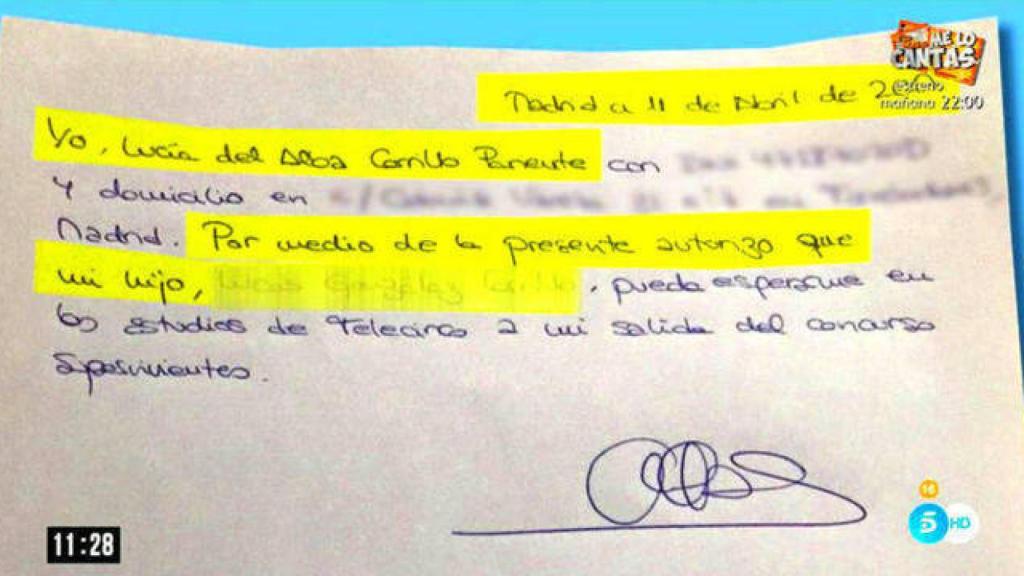 ME LO
CANTAS
estreno
mañana 22:00
Madrid a 11 de Abril de
Yo, Lucía del Alba Carrillo Pariente con
y domicilio en
Madrid. Por medio de la presente autorizo que
mi hijo, , pueda esperarme en
los estudios de Telecinco a mi salida del concurso
Supervivientes.
11:28
5 HD